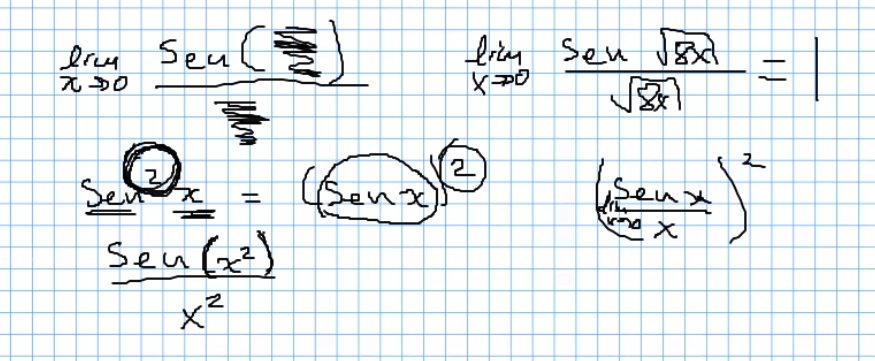 lim x→0 Sen( ) / lim x→0 Sen √8x / √8x = 1
Sen² x = (Sen x)² (lim x→0 Sen x / x)²
Sen(x²) / x²